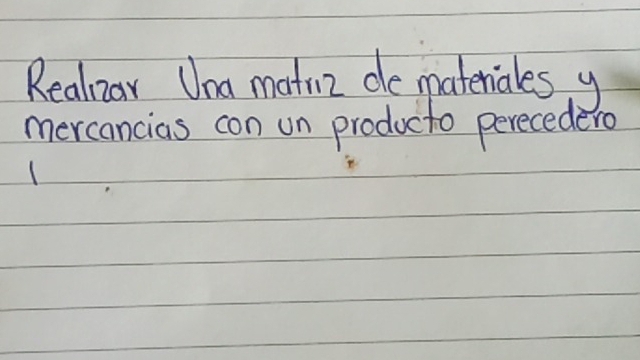 Realizar Una matriz de materiales y
mercancias con un producto perecedero